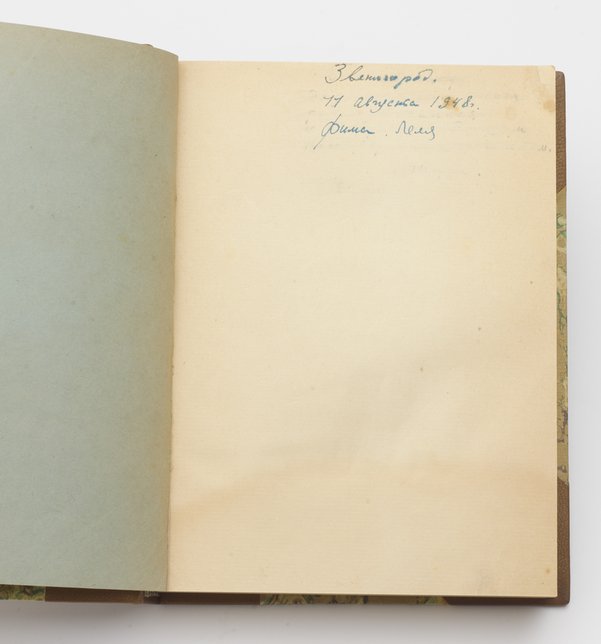 Звенигород.
11 августа 1948г.
Фима. Леля